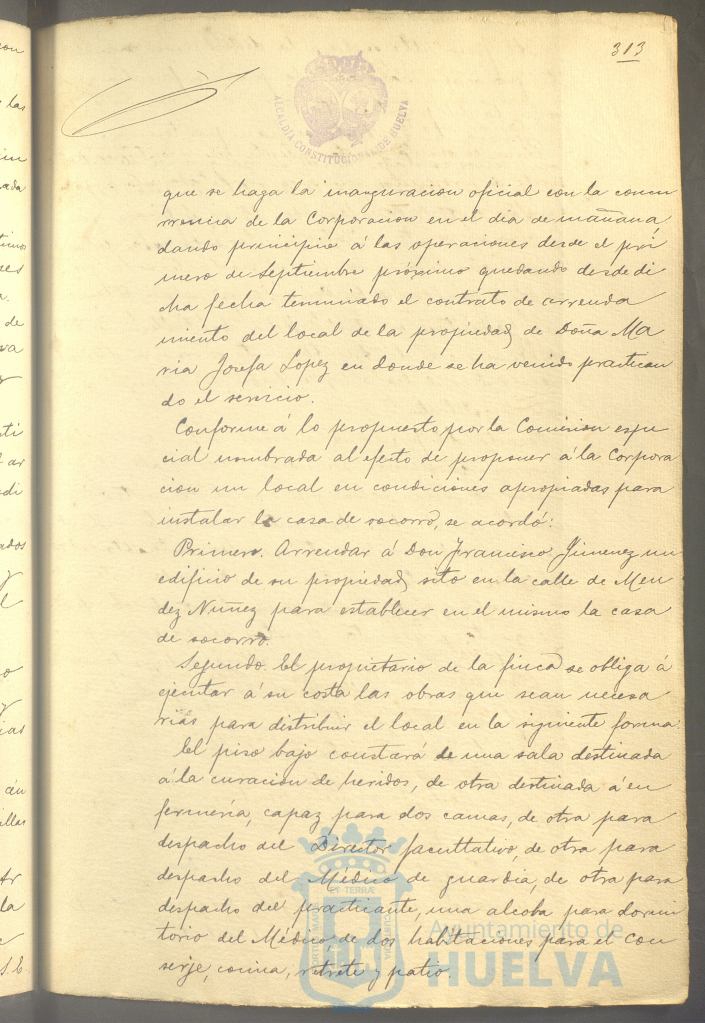 313
ALCALDIA CONSTITUCIONAL DE HUELVA
que se haga la inauguracion oficial con la concu
rrencia de la Corporacion en el dia de mañana,
dando principio á las operaciones desde el pri
mero de Septiembre próximo quedando desde di
cha fecha terminado el contrato de arrenda
miento del local de la propiedad de Doña Ma
ria Josefa Lopez en donde se ha venido practican
do el servicio.
Conforme á lo propuesto por la Comision espe
cial nombrada al efecto de proponer á la Corpora
cion un local en condiciones apropiadas para
instalar la casa de socorro, se acordó:
Primero. Arrendar á Don Francisco Jimenez un
edificio de su propiedad sito en la calle de Men
dez Nuñez para establecer en el mismo la casa
de socorro.
Segundo. El propietario de la finca se obliga á
ejecutar á su costa las obras que sean necesa
rias para distribuir el local en la siguiente forma:
El piso bajo constará de una sala destinada
á la curacion de heridos, de otra destinada á en
fermería, capaz para dos camas, de otra para
despacho del Director facultativo, de otra para
despacho del Médico de guardia, de otra para
despacho del practicante, una alcoba para dormi
torio del Médico, de dos habitaciones para el con
serje, cocina, retrete y patio.
Ayuntamiento de
HUELVA